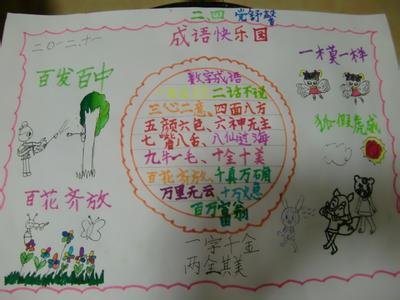 二.四 党舒馨
二〇一二.十一
成语快乐园
一模一样
百发百中
狐假虎威
数字成语
二话不说
三心二意、四面八方
五颜六色、六神无主
七嘴八舌、八仙过海
九牛一毛、十全十美
百花齐放 千真万确
万里无云 十万火急
百万富翁
百花齐放
一字千金
两全其美